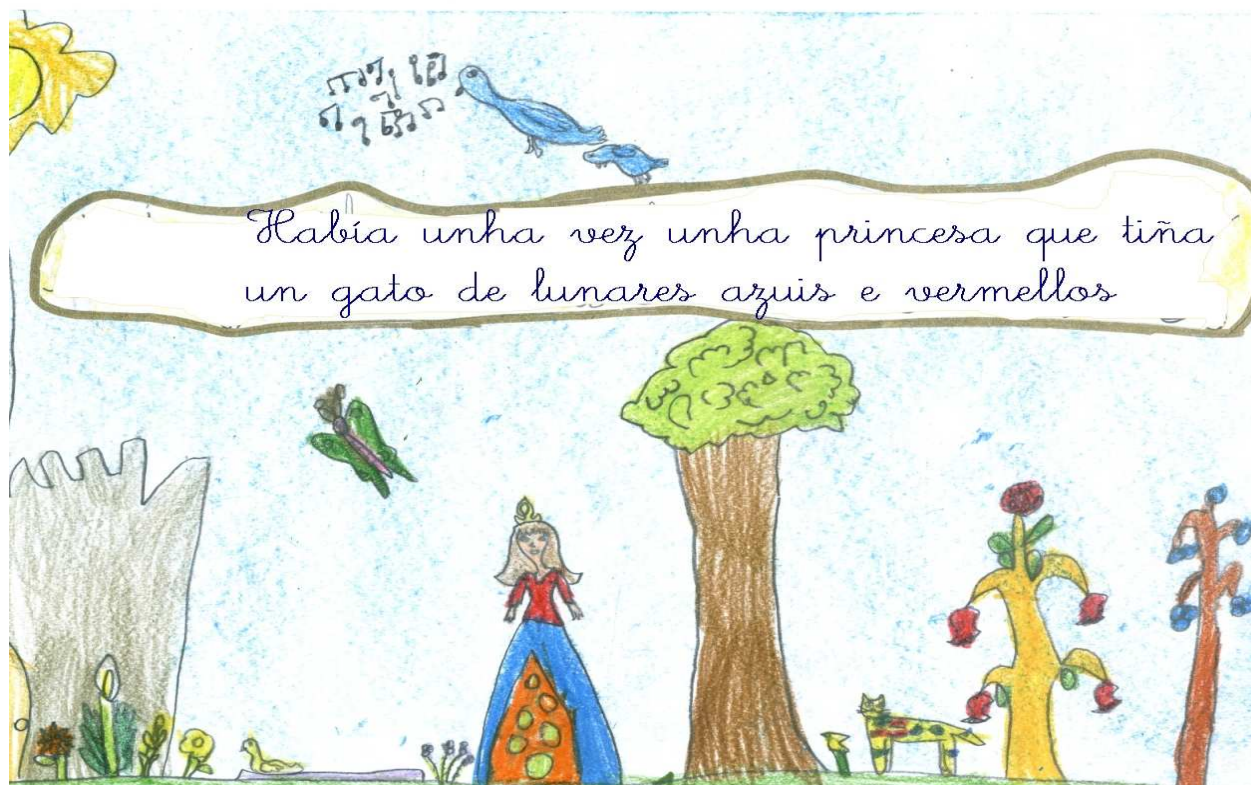 Había unha vez unha princesa que tiña
un gato de lunares azuis e vermellos